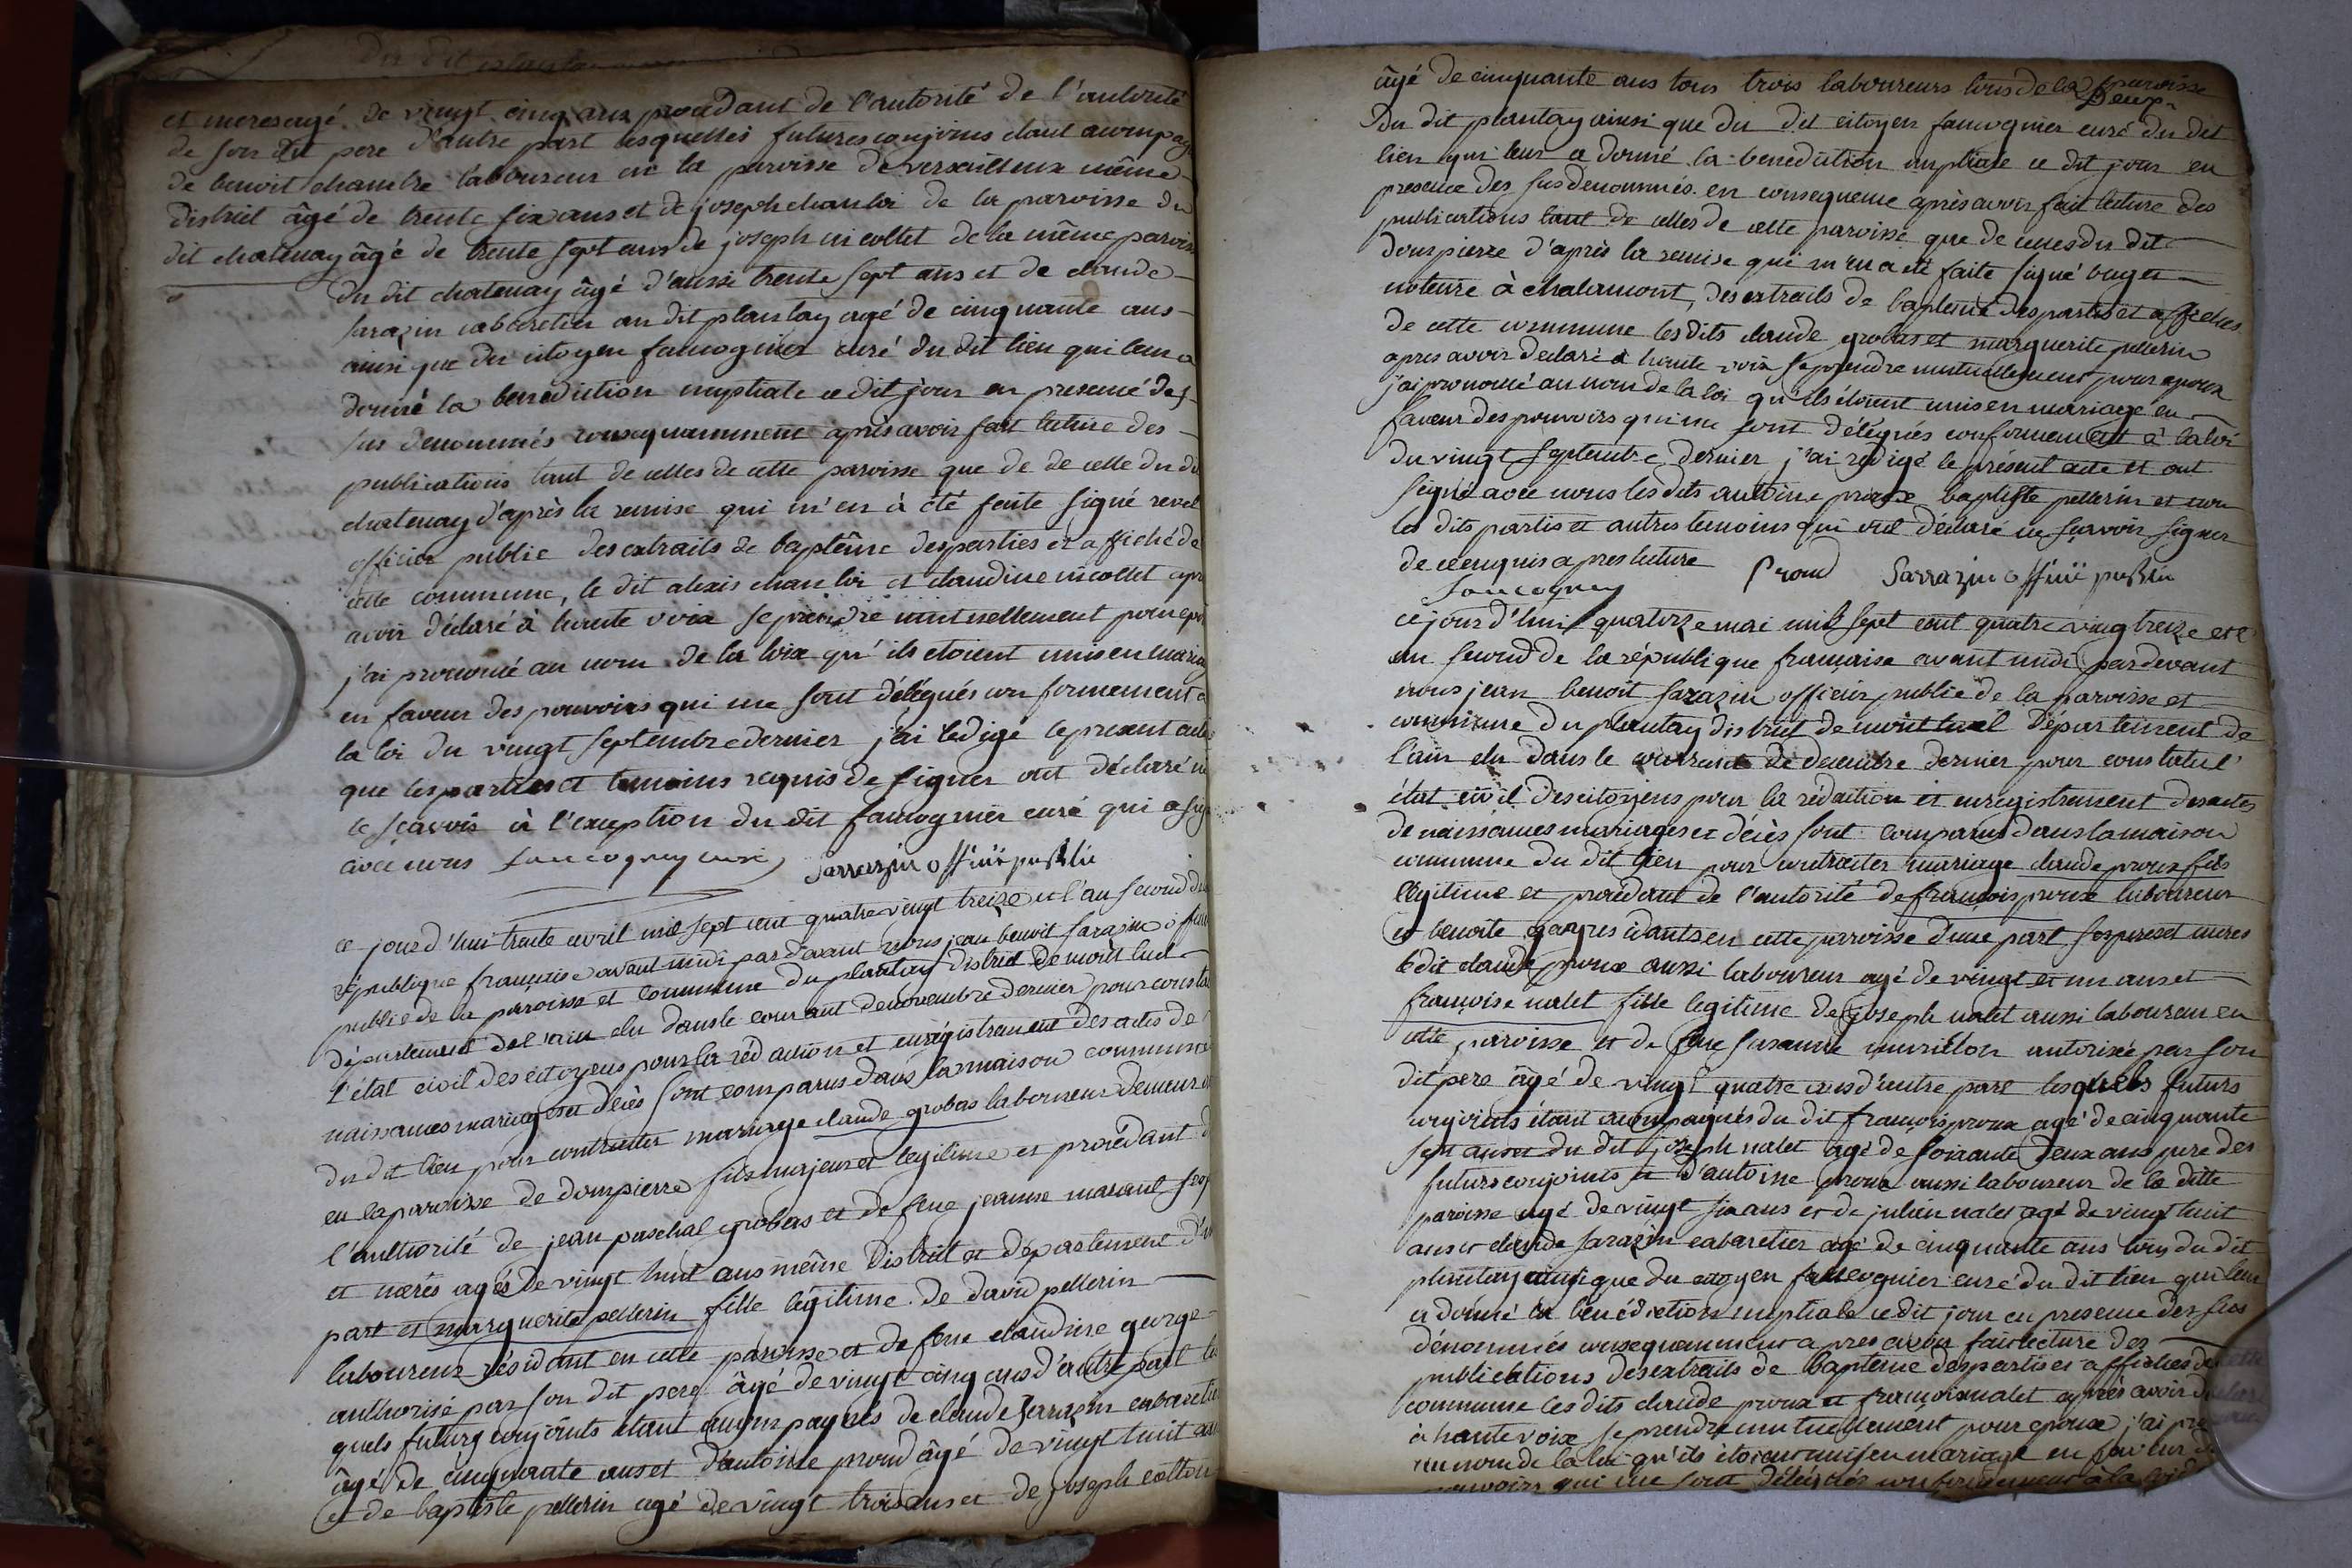 du dit plantay
et meres agé de vingt cinq ans procedant de l'autorité de l'autorité
de son dit pere d'autre part lesquelles futures conjoins etant acompag
de benoit chambre laboureur en la paroisse de versailleux même
district âgé de trente six ans et de joseph chanloi de la paroisse du
dit chatenay âgé de trente sept ans de joseph nicollet de la même parois
du dit chatenay âgé d'aussi trente sept ans et de claude
sarazin cabaretier au dit plantay agé de cinquante ans
ainsi que du citoyen faucognier curé du dit lieu qui leur a
donné la benediction nuptiale ce dit jour en presence des
sus denommés consequamment après avoir fait lecture des
publications tant de celles de cette paroisse que de de celle du di
chatenay d'après la remise qui m'en à été faite signé revel
officier public des extraits de baptême des parties et affiché de
cette commune, le dit alexis chanloi et claudine nicollet apr
avoir déclaré à haute voix se prendre mutuellement pour epo
j'ai prononcé au nom de la loix qu'ils etoient unis en mariag
en faveur des pouvoirs qui me sont délégués conformement a
la loi du vingt septembre dernier j'ai redigé le present acte
que les parties et temoins requis de signer ont déclaré ne
le sçavoir à l'exception du dit faucognier curé qui a sig
avec nous faucogney curé Sarrazin officié publie
ce jourd'hui trente avril mil sept cent quatre vingt treize et l'an second de
république française avant midi par devant nous jean benoit sarazin offici
public de la paroisse et commune du plantay district de mont luel
département de l'ain elu dans le courant de novembre dernier pour consta
l'état civil des citoyens pour la rédaction et enrégistrement des actes de
naissances mariages et décès sont comparus dans la maison commune
du dit lieu pour contracter mariage claude grobas laboureur demeur
en la paroisse de dompierre fils majeur et legitime et procédant d
l'authorité de jean paschal grobas et de feue jeanne maraul ses
et meres agés de vingt huit ans même district et département d'u
part et marguerite pellerin fille légitime de david pellerin
laboureur résidant en cette paroisse et de feue claudine george
authorisé par son dit pere âgé de vingt cinq ans d'autre part les
quels futurs conjoints étant accompagnés de claude sarazin cabaretie
âgé de cinquante ans et d'antoine proud âgé de vingt huit ans
et de baptiste pellerin agé de vingt trois ans et de joseph cotton
âgé de cinquante ans tous trois laboureurs tous de la paroisse
du dit plantay ainsi que du dit citoyen faucognier curé du dit
lieu qui leur a donné la benediction nuptiale ce dit jour en
presence des sus denommés en consequence après avoir fait lecture des
publications tant de celles de cette paroisse que de celles du dit
dompierre d'après la remise qui m'en a eté faite signé buget
notaire à chalamont, des extraits de baptême des parties et affiches
de cette commune les dits claude grobas et marguerite pellerin
apres avoir declaré à haute voix se prendre mutuellement pour epoux
j'ai prononcé au nom de la loi qu'ils étoient unis en mariage en
faveur des pouvoirs qui me sont délégués conformement à la loi
du vingt septembre dernier j'ai redigé le présent acte et ont
signé avec nous les dits antoine proux baptiste pellerin et non
les dits partis et autres temoins qui ont déclaré ne sçavoir signer
de ce enquis apres lecture Proud Sarrazin officié publiu
faucogney
ce jourd'hui quatorze mai mil sept cent quatre vingt treize et l'
an second de la république française avant midi par devant
nous jean benoit sarazin officier public de la paroisse et
commune du plantay district de mont luel département de
l'ain elu dans le courant de decembre dernier pour constater l'
état civil des citoyens pour la rédaction et enregistrement des actes
de naissances mariages et décès sont comparus dans la maison
commune du dit lieu pour contracter mariage claude proux fils
légitime et procédant de l'autorité de françois proux laboureur
et benoite residants en cette paroisse d'une part ses peres et meres
le dit claude proux aussi laboureur agé de vingt et un ans et
françoise nalet fille legitime de joseph nalet aussi laboureur en
cette paroisse et de feue susanne autorisée par son
dit pere âgé de vingt quatre ans d'autre part lesquels futurs
conjoints étant accompagnés du dit françois proux agé de cinquante
sept ans et du dit joseph nalet agé de soixante deux ans pere des
futurs conjoints et d'antoine proux aussi laboureur de la ditte
paroisse agé de vingt six ans et de julien nalet agé de vingt huit
ans et claude sarazin cabaretier agé de cinquante ans tous du dit
plantay ainsi que du citoyen faucognier curé du dit lieu qui leur
a donné la benédiction nuptiale ce dit jour en presence des sus
dénommés consequemment apres avoir fait lecture des
publications des extraits de baptême des parties et affiches de cette
commune les dits claude proux et françoise nalet après avoir déclaré
à haute voix se prendre mutuellement pour epoux j'ai pro
au nom de la loi qu'ils étoient unis en mariage en faveur de
pouvoirs qui me sont délégués conformement à la loi d